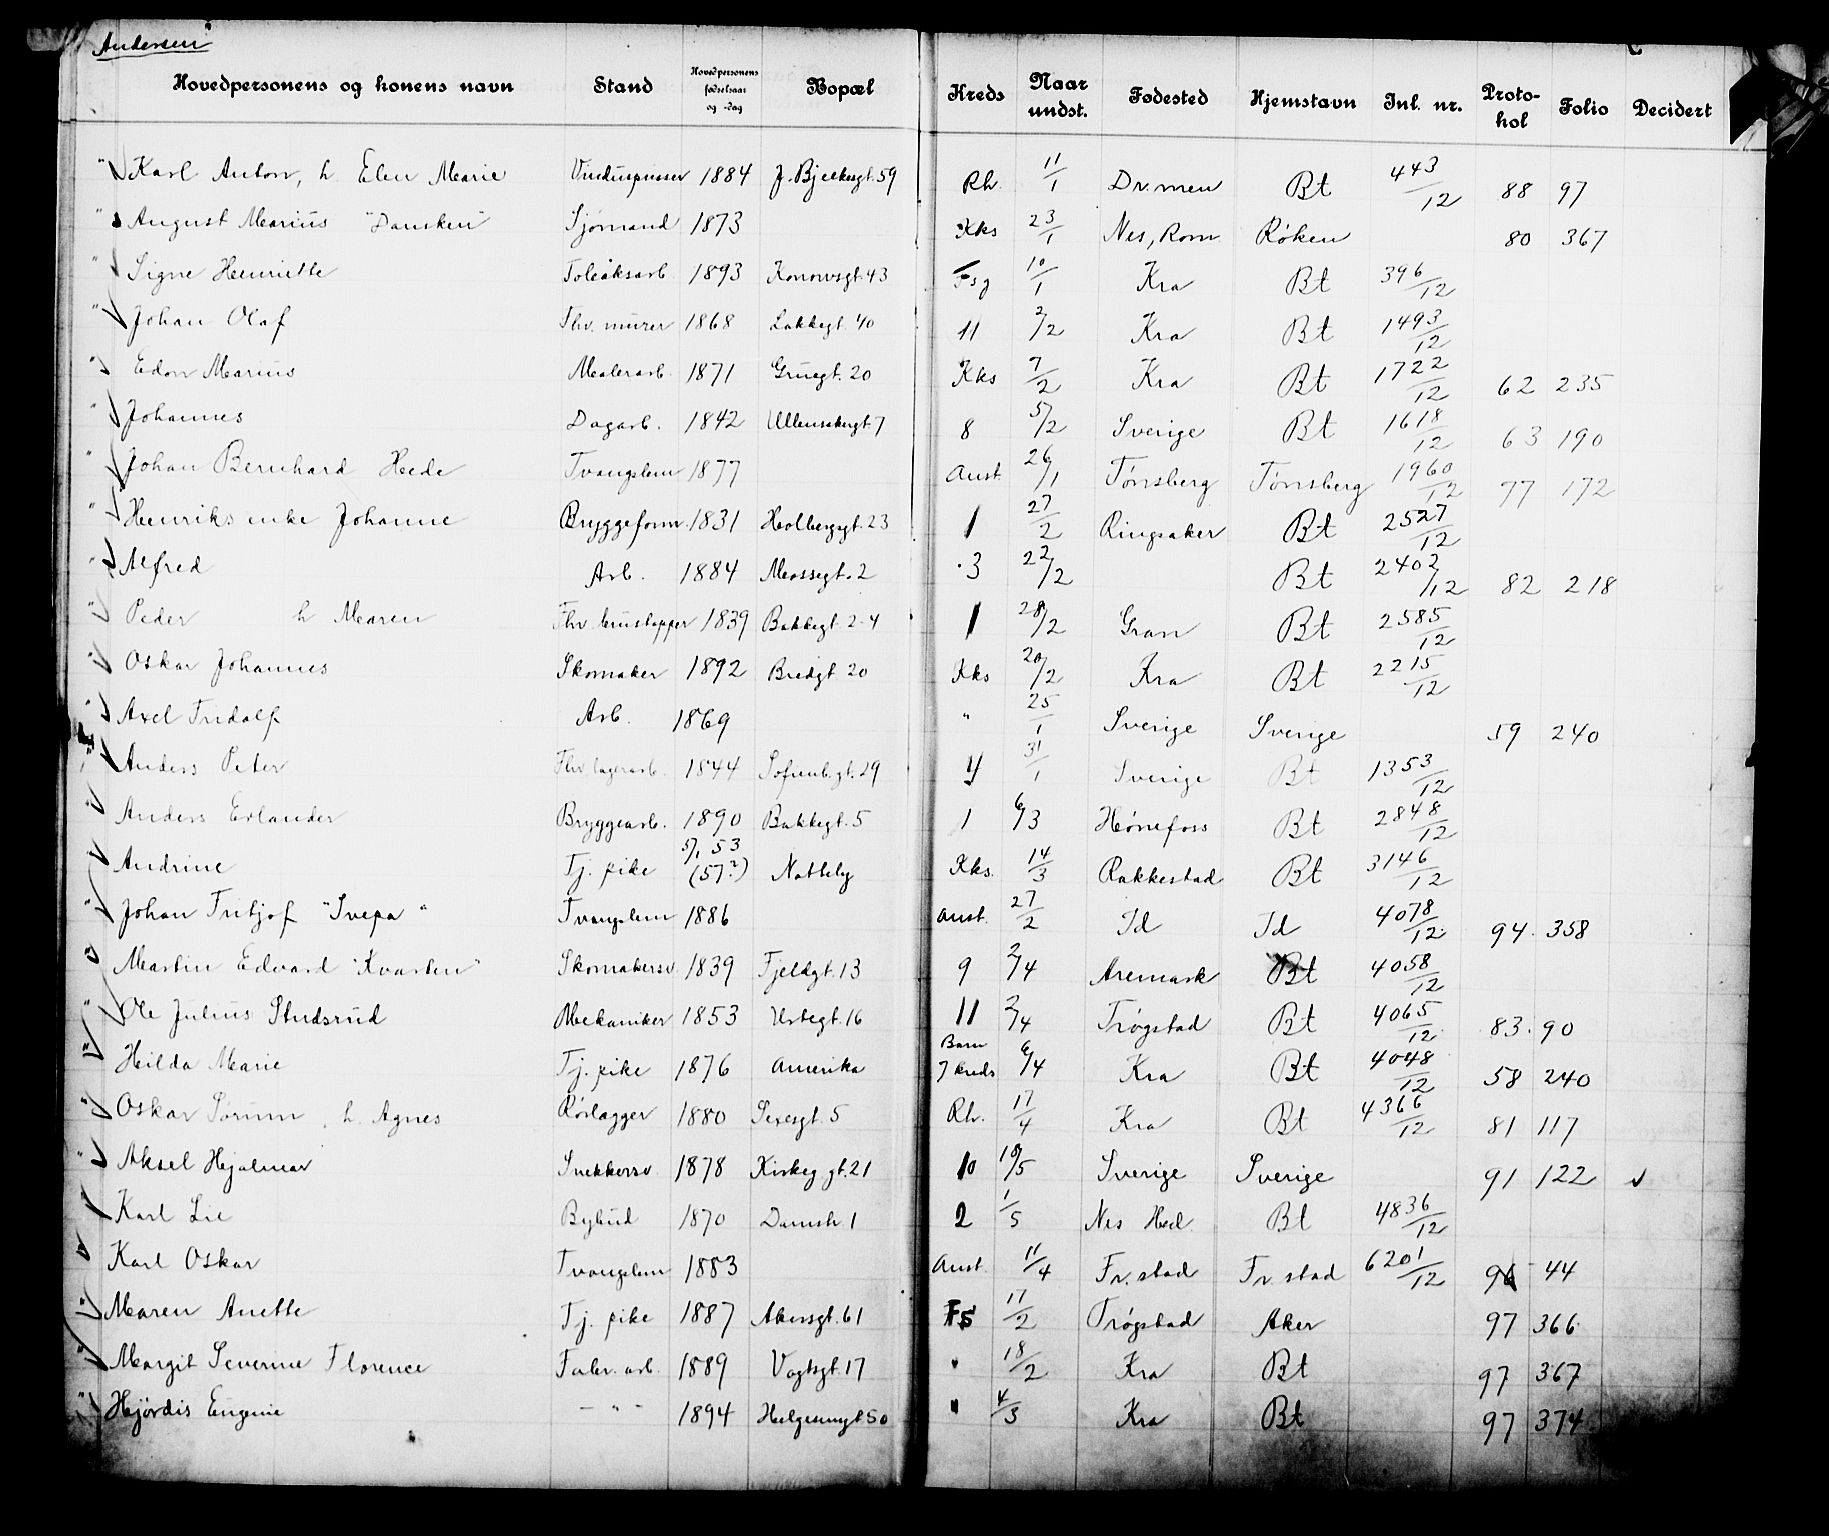 Andersen
Hovedpersonens og konens navn Stand Hovedpersonens fødselsaar og -dag Bopæl Kreds Naar undst. Fødested Hjemstavn Inl. nr. Protokol Folio Decidert
" Karl Anton, h. Elen Marie Vinduspusser 1884 J. Bjelkesgt. 59 Rh. 11/1 Dr.men Bt 443/12 88 97
" August Marius "Dansken" Sjømand 1873 Kks 23/1 Nes, Rom. Røken 80 367
" Signe Henriette Tobaksarb. 1893 Konowsgt. 43 Fsg 10/1 Kra Bt 396/12
" Johan Olaf Fhv. murer 1868 Lakkegt. 40 11 2/2 Kra Bt 1493/12
" Edon Marius Malerarb. 1871 Gruegt. 20 Kks 7/2 Kra Bt 1722/12 62 235
" Johannes Dagarb. 1842 8 5/2 Sverige Bt 1618/12 63 190
" Johan Bernhard Hede Tvangslem 1877 Anst. 26/1 Tønsberg Tønsberg 1960/12 77 172
" Henriks enke Johanne Bryggeform. 1831 Holbergsgt. 23 1 27/2 Ringsaker Bt 2527/12
" Alfred Arb. 1884 Mossegt. 2 3 22/2 Bt 2402/12 82 218
" Peder h Maren Fhv. 1839 Bakkegt. 2-4 1 28/2 Gran Bt 2585/12
" Oskar Johannes Skomaker 1892 Bredgt 20 Kks 20/2 Kra Bt 2215/12
" Axel Fridolf Arb. 1869 " 25/1 Sverige Sverige 59 240
" Anders Peter Fhv. lagerarb. 1844 Sofienb.gt. 29 4 31/1 Sverige Bt 1353/12
" Anders Erlander Bryggearb. 1890 Bakkegt. 5 1 6/3 Hønefoss Bt 2848/12
" Andrine Tj. pike 5/1 53 (57?) Nøtteby Kks. 14/3 Rakkestad Bt 3146/12
" Johan Fritjof "Svepa" Tvangslem 1886 Anst. 27/2 Id Id 4078/12 94. 358
" Martin Edvard "Kvarten" Skomakersv. 1839 Fjeldgt. 13 9 2/4 Aremark Bt 4058/12
" Ole Julius Studsrud Mekaniker 1853 Urtegt. 16 11 2/4 Trøgstad Bt 4065/12 83. 90
" Hilda Marie Tj. pike 1876 Amerika Barn 7 kreds 6/4 Kra Bt 4048/12 58 240
" Oskar Sørum, h. Agnes Rørlægger 1880 Sexesgt. 5 Rh. 17/4 Kra Bt 4366/12 81 117
" Aksel Hjalmar Snekkersv. 1878 Kirkeg gt. 21 10 10/5 Sverige Sverige 91 122 ✓
" Karl Lie Bybud 1870 Damstr. 1 2 1/5 Nes Hed. Bt 4836/12
" Karl Oskar Tvangslem 1883 Anst. 11/4 Fr.stad Fr.stad 6201/12 96 44
" Maren Anette Tj. pike 1887 Akersgt. 61 Fs 17/2 Trøgstad Aker 97 366
" Margit Severine Florence Fabr. arb. 1889 Vogtsgt. 17 " 18/2 Kra Bt 97 367
" Hjørdis Eugenie - " - 1894 Helgesensgt 50 " 4/3 Kra Bt 97 374